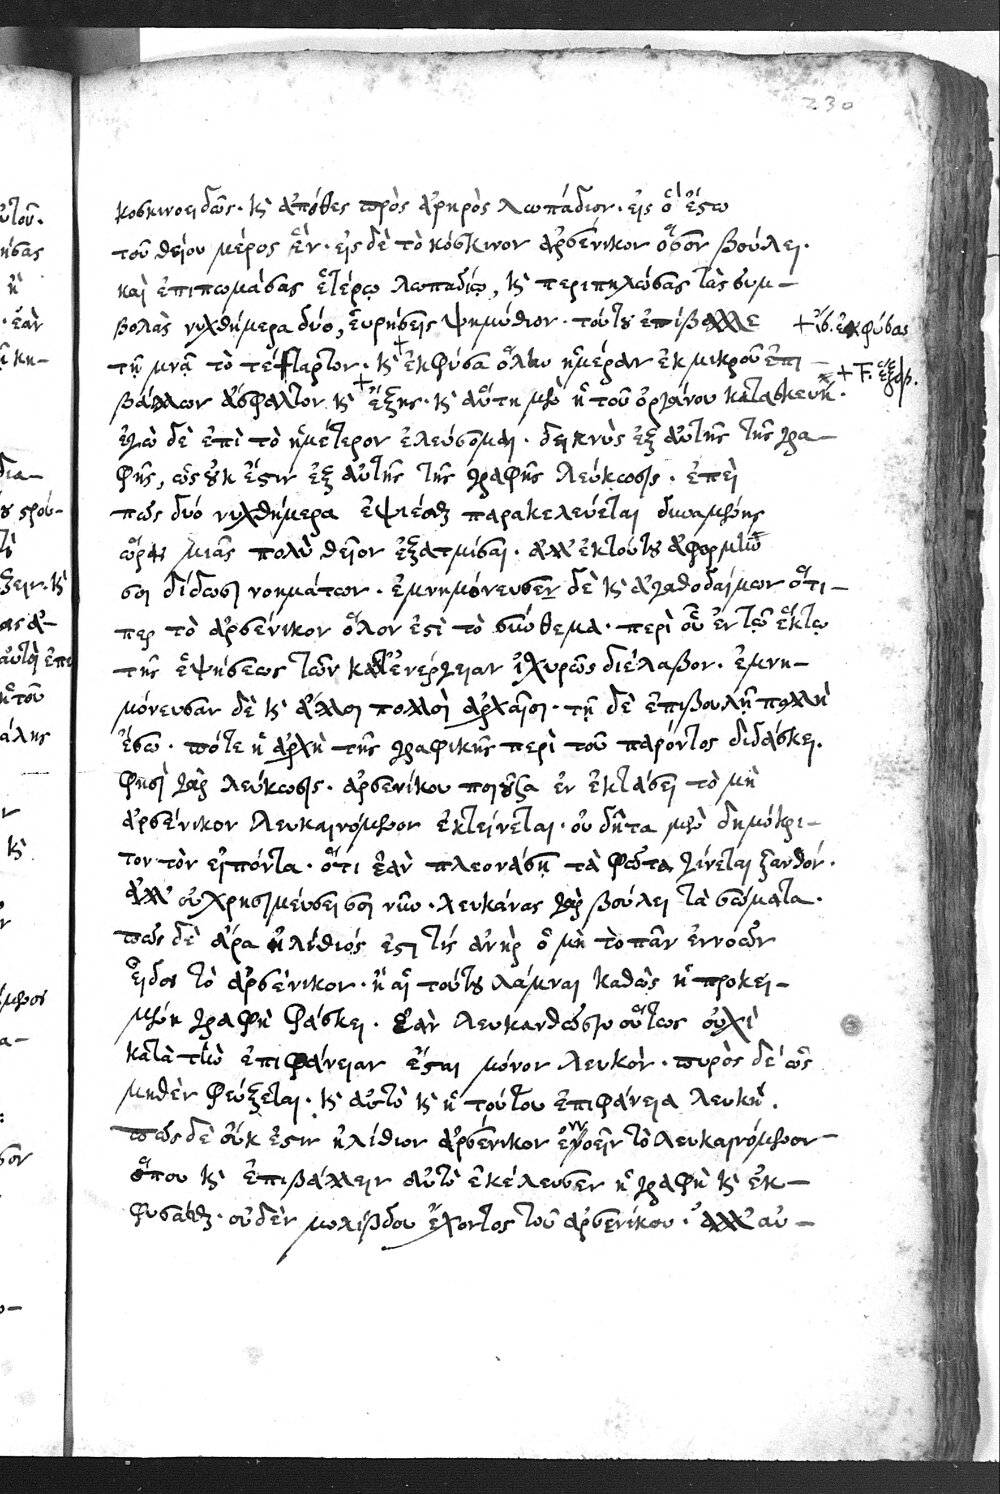 230
κοσκινοειδῶς· κὶ ἀπόθες πρὸς ἀρηρὸς λωπάδιον· εἰς ὃ ἔστω
τοῦ θείου μέρος ἕν· εἰς δὲ τὸ κόσκινον ἀρσένικον ὅσον βούλει·
καὶ ἐπιπωμάσας ἑτέρῳ λωπαδίῳ, κὶ περιπηλώσας τὰς συμ–
βολὰς νυχθήμερα δύο, εὑρήσεις ψημύθιον· τούτου ἐπίβαλλε
+ ἐκφύσας
τῇ μνᾷ τὸ τέταρτον· κὶ ἐκφύσα ὅλην ἡμέραν ἐκ μικροῦ ἐπι–
βάλλων ἀσφαλτον κὶ ἑξῆς· κὶ αὕτη μὲν ἡ τοῦ ὀργάνου κατασκευή·
ἐγὼ δὲ ἐπὶ τὸ ἡμέτερον ἐλεύσομαι· δεικνὺς ἐξ αὐτῆς τῆς γρα–
φῆς, ὡς οὐκ ἔστιν ἐξ αὐτῆς τῆς γραφῆς λεύκωσις· ἐπεὶ
πῶς δύο νυχθήμερα ἑψιέσθαι παρακελεύεται δυναμένης
ὥρας μιᾶς πολὺ θεῖον ἐξατμίσαι· ἀλλ' ἐκ τούτου ἀφορμὴν
σοι δίδωσι νοημάτων· ἐμνημόνευσεν δὲ κὶ ἀγαθοδαίμων ὅτι–
περ τὸ ἀρσένικον ὅλον ἐστὶ τὸ σύνθεμα· περὶ οὗ ἐν τῷ ἕκτῳ
τῆς ἑψήσεως τῶν κατ' ἐνέργειαν ἰσχυρῶς διέλαβον· ἐμνη–
μόνευσαν δὲ κὶ ἄλλοι πολλοὶ ἀρχαῖοι· τῇ δὲ ἐπιβουλῇ πολλὴ
ἔσω· πότε ἡ ἀρχὴ τῆς γραφικῆς περὶ τοῦ παρόντος διδάσκει·
φησὶ γὰρ λεύκωσις· ἀρσενίκου ποιοῦσα ἐν ἐκτάσει τὸ μὴ
ἀρσένικον λευκαινόμενον ἐκτείνεται· οὐ δῆτα μὲν δημόκρι–
τον τὸν εἰπόντα· ὅτι ἐὰν πλεονάσῃ τὰ φῶτα γίνεται ξανθόν·
ἀλλ' οὐ χρησιμεύσει σοι νῦν· λευκάνας γὰρ βούλει τὰ σώματα·
πῶς δὲ ἄρα ἠλίθιός ἐστι τίς ἀνὴρ ὁ μὴ τὸ πᾶν ἐννοῶν
εἶδος τὸ ἀρσένικον· ἢ αἱ τούτου λάμναι καθὼς ἡ προκει–
μένη γραφὴ φάσκει· ἐὰν λευκανθῶσιν οὕτως οὐχὶ
κατὰ τὴν ἐπιφάνειαν ἔσται μόνον λευκὸν· πυρὸς δὲ ὡς
μηθὲν φεύξεται· κὶ αὐτὸ κὶ ἡ τούτου ἐπιφάνεια λευκή·
πῶς δὲ οὐκ ἔστιν ἠλίθιον ἀρσένικον ἐννοεῖν τὸ λευκαινόμενον–
ὅπου κὶ ἐπιβάλλειν αὐτὸ ἐκέλευσεν ἡ γραφὴ κὶ ἐκ–
φυσᾶσθαι· οὐδὲν μολίβδου ἔχοντος τοῦ ἀρσενίκου· ἀλλ' αὐ–